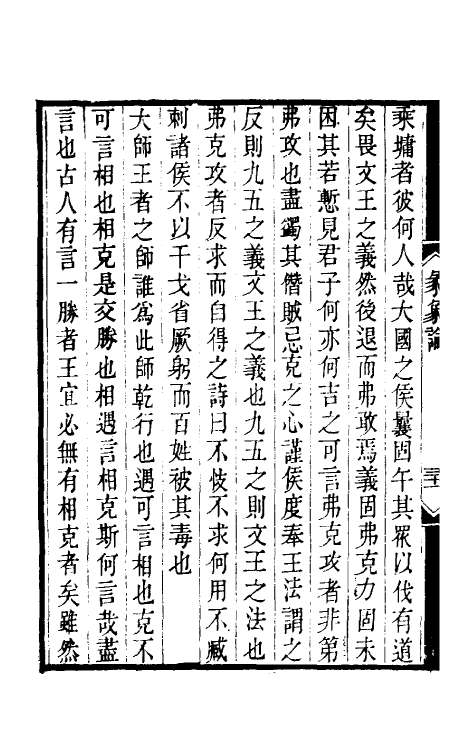 乘墉者彼何人哉大國之侯曩固午其眾以伐有道
矣畏文王之義然後退而弗敢焉義固弗克力固未
困其若慙見君子何亦何吉之可言弗克攻者非第
弗攻也盡蠲其僭賊忌克之心謹侯度奉王法謂之
反則九五之義文王之義也九五之則文王之法也
弗克攻者反求而自得之詩曰不忮不求何用不臧
刺諸侯不以干戈省厥躬而百姓被其毒也
大師王者之師誰為此師乾行也遇可言相也克不
可言相也相克是交勝也相遇言相克斯何言哉盡
言也古人有言一勝者王宜必無有相克者矣雖然
彖象論